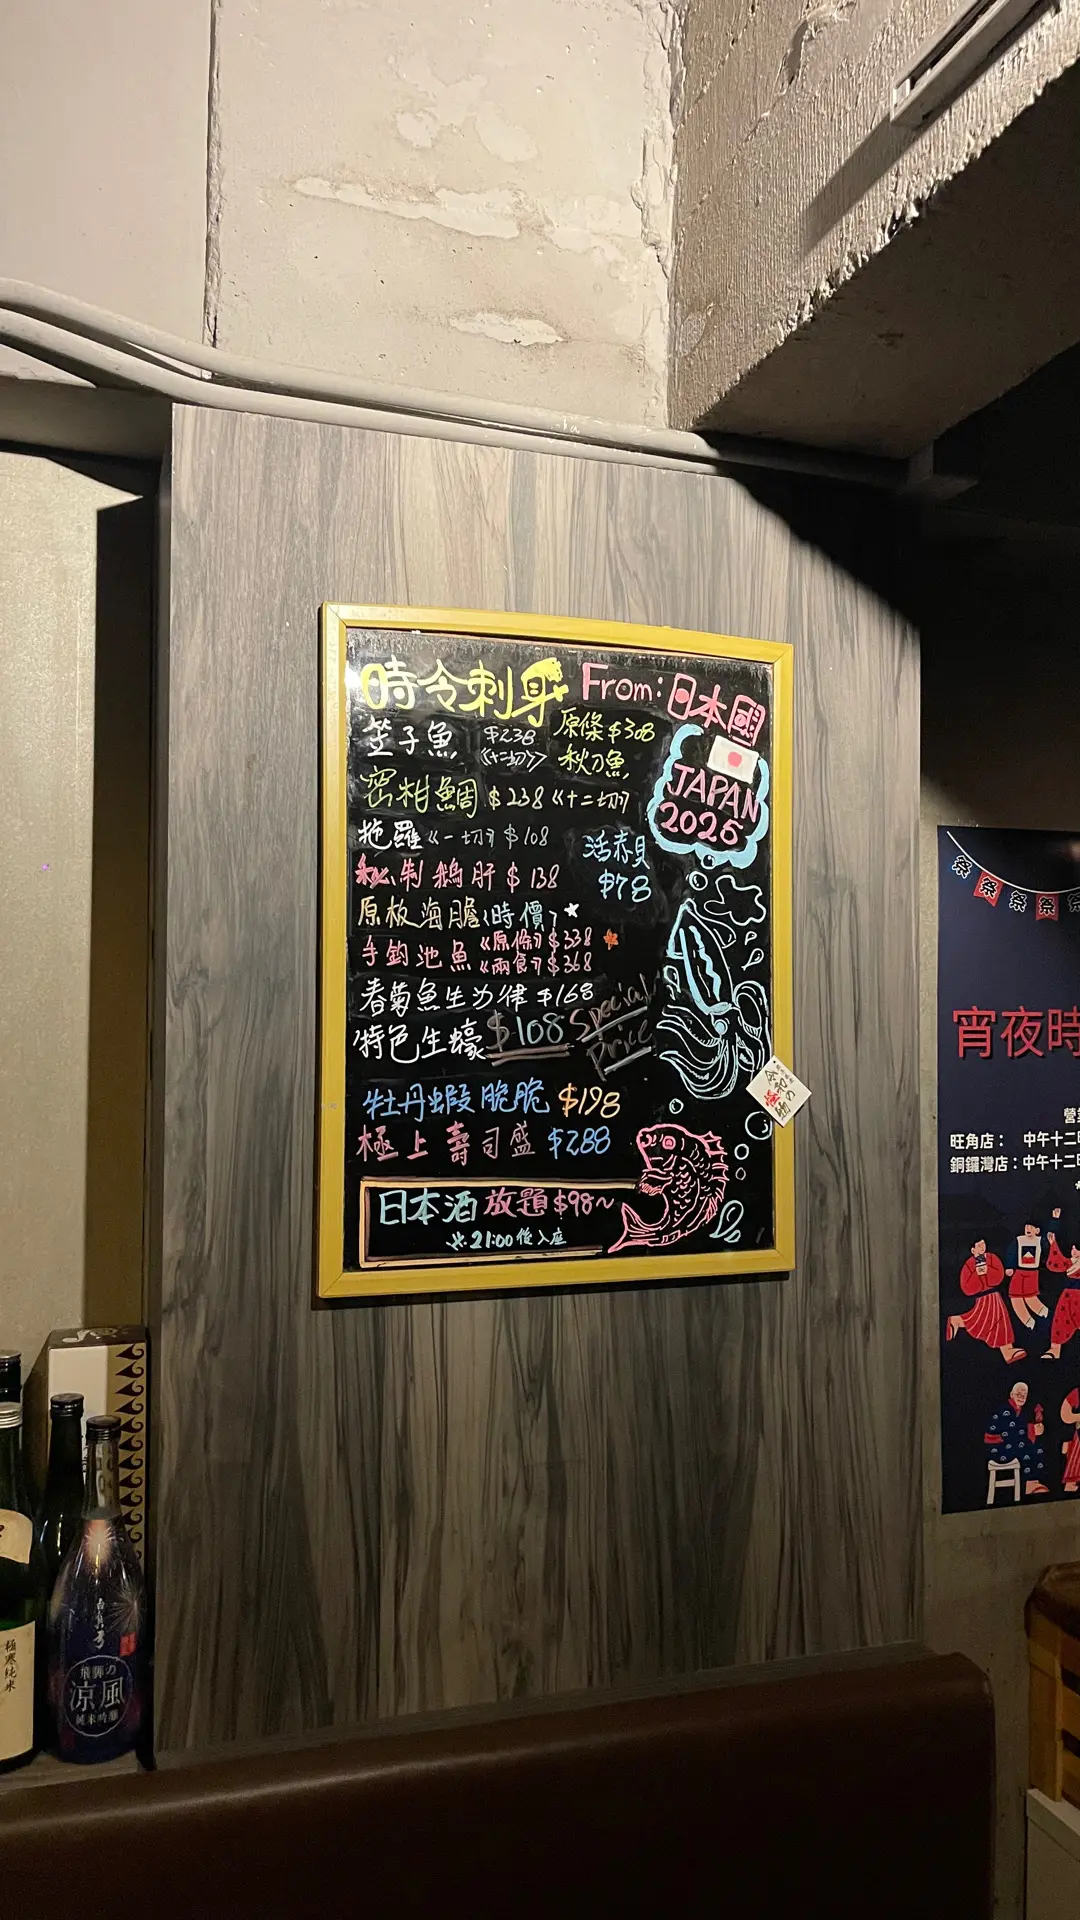 時令刺身 From: 日本國
笠子魚 $238 《十二切》
原條 $308
秋刀魚
密柑鯛 $238 《十二切》
JAPAN
2025
拖羅《一切》$108
活赤貝
$78
私制鵝肝 $138
原板海膽(時價)
手釣池魚《原條》$338
《兩食》$368
春菊魚生沙律 $168
特色生蠔 $108 Special Price
牡丹蝦脆脆 $198
極上壽司盛 $288
日本酒放題 $98~
※21:00後入座
祭 祭 祭 祭 祭
宵夜時
旺角店： 中午十二
銅鑼灣店：中午十二
極寒純米
飛騨の
涼風
純米吟醸